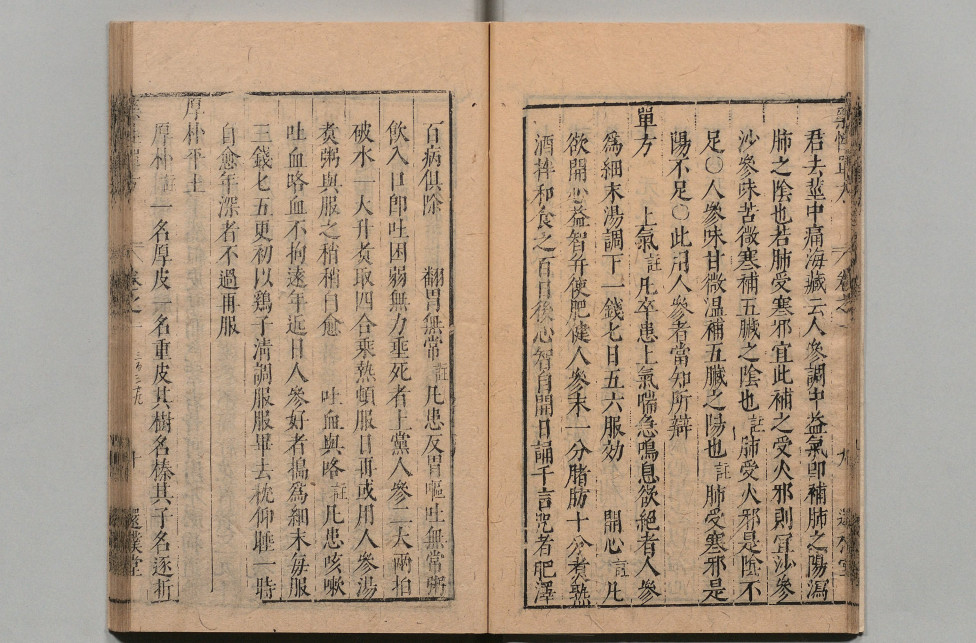 君去莖中痛海藏云人參調中益氣卽補肺之陽瀉
肺之陰也若肺受寒邪宜此補之受火邪則宜沙參
沙參味苦微寒補五臟之陰也註肺受火邪是陰不
足○人參味甘微溫補五臟之陽也註肺受寒邪是
陽不足○此用人參者當知所辯
單方 上氣註凡卒患上氣喘急鳴息欲絕者人參
爲細末湯調下一錢七日五六服効 開心註凡
欲開心益智并使肥健人參末一分猪肪十分煮熟
酒拌和食之百日後心智自開日誦千言咒者肥澤
百病俱除 翻胃無常註凡患反胃嘔吐無常粥
飲入口卽吐困弱無力垂死者上黨人參二大兩拍
破水一大升煮取四合乘熱頓服日再或用人參湯
煮粥與服之稍稍自愈 吐血與咯註凡患咳嗽
吐血咯血不拘遠年近日人參好者搗爲細末每服
三錢匕五更初以鷄子淸調服服畢去枕仰睡一時
自愈年深者不過再服
厚朴平土
厚朴註一名厚皮一名重皮其樹名榛其子名逐折
卷之一
還樸堂